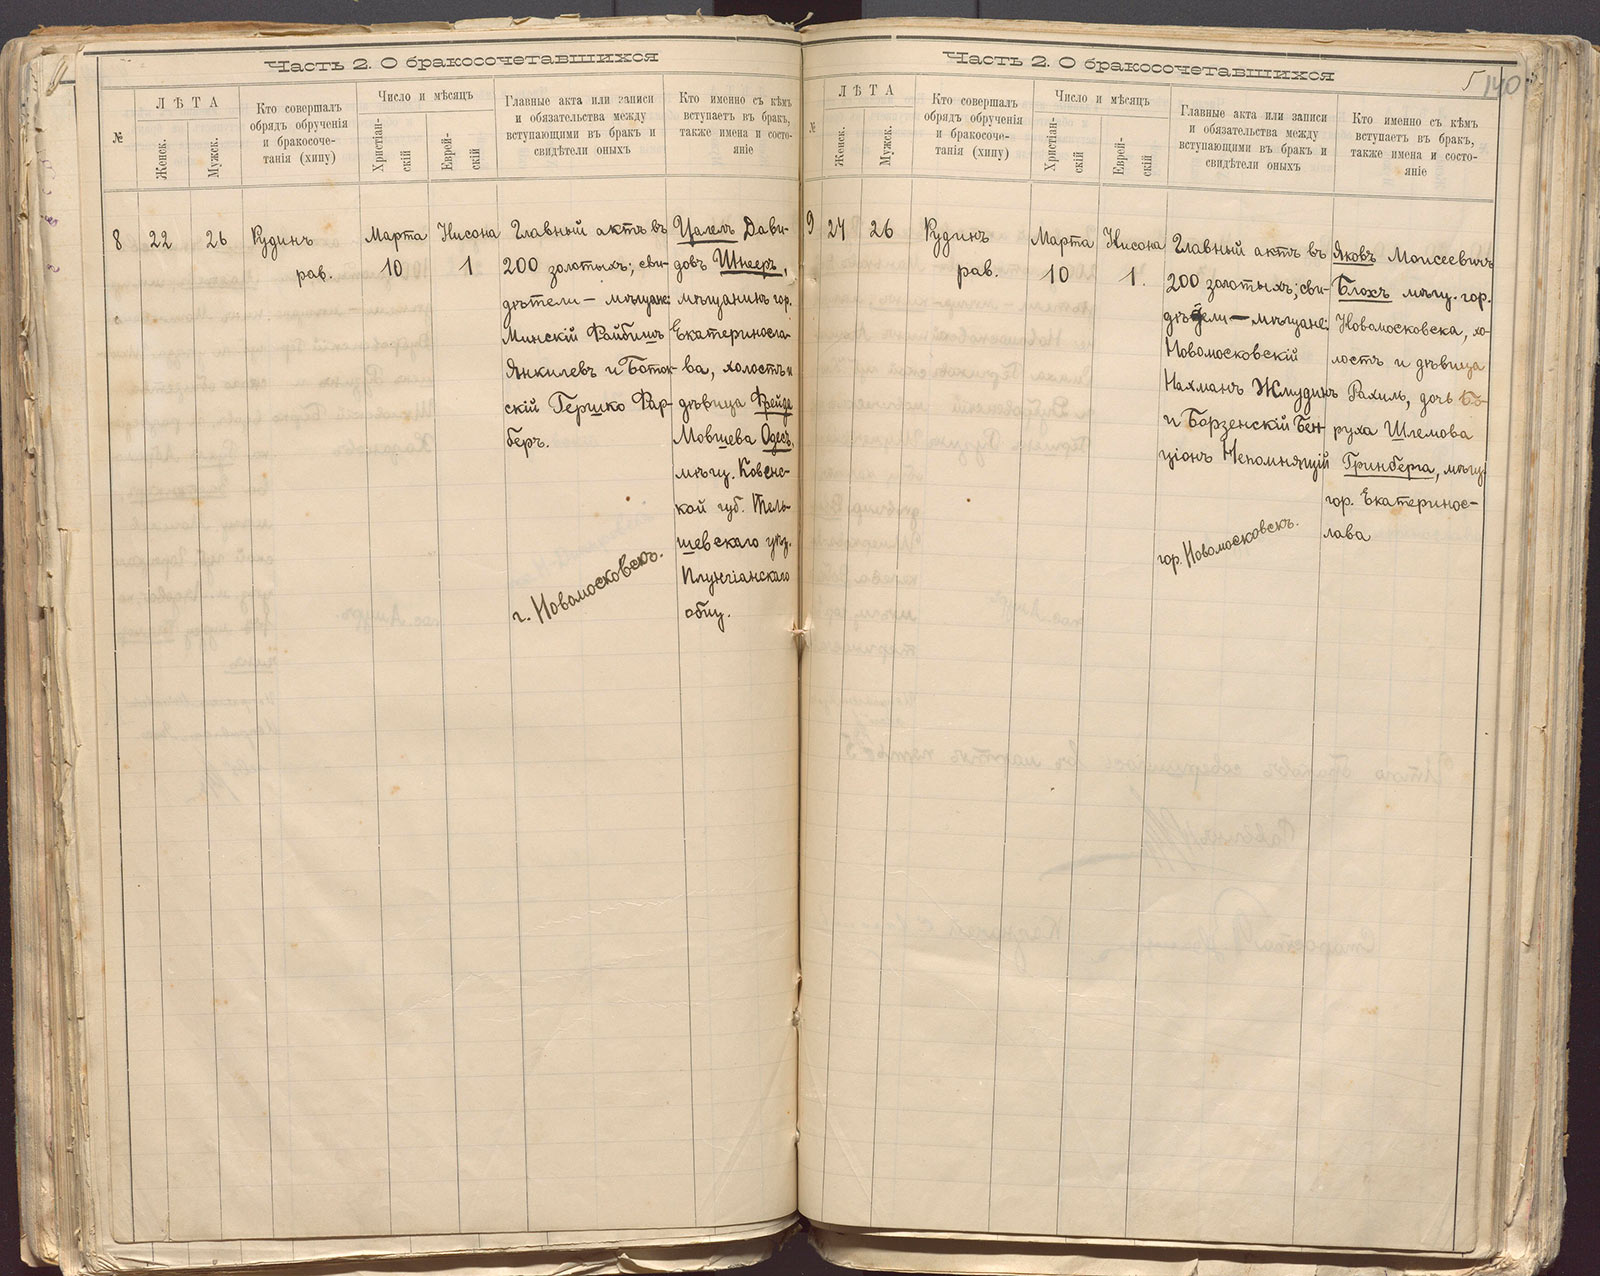 Часть 2. О бракосочетавшихся
№
ЛѢТА
Женск.
Мужск.
Кто совершалъ
обрядъ обрученія
и бракосоче-
танія (хипу)
Число и мѣсяцъ
Христіан-
скій
Еврей-
скій
Главные акта или записи
и обязательства между
вступающими въ бракъ и
свидѣтели оныхъ
Кто именно съ кѣмъ
вступаетъ въ бракъ,
также имена и состо-
яніе
8
22
26
Рудинъ
рав.
Марта
10
Нисона
1
Главный актъ въ
200 золотыхъ; сви-
дѣтели — мѣщане:
Минскій Файбишъ
Янкилевъ и
скій Гершко Фар-
беръ.
г. Новомосковскъ.
Цалелъ Дави-
довъ Шнееръ,
мѣщанинъ гор.
Екатеринosла-
ва, холостъ и
дѣвица Фрейда
Мовшева Одесъ,
мѣщ. Ковенс-
кой губ. Тель-
шевскаго уѣз.
Плунгіанскаго
общ.
Часть 2. О бракосочетавшихся
140
№
ЛѢТА
Женск.
Мужск.
Кто совершалъ
обрядъ обрученія
и бракосоче-
танія (хипу)
Число и мѣсяцъ
Христіан-
скій
Еврей-
скій
Главные акта или записи
и обязательства между
вступающими въ бракъ и
свидѣтели оныхъ
Кто именно съ кѣмъ
вступаетъ въ бракъ,
также имена и состо-
яніе
9
24
26
Рудинъ
рав.
Марта
10
Нисона
1.
Главный актъ въ
200 золотыхъ; сви-
дѣтели — мѣщане:
Новомосковскій
Нахманъ Жмудинъ
и Борзенскій Бен-
ціонъ Непомнящій
гор. Новомосковскъ.
Яковъ Моисеевичъ
Блохъ мѣщ. гор.
Новомосковска, хо-
лостъ и дѣвица
Рахиль, дочь Бо-
руха Шлемова
Гринберга, мѣщ.
гор. Екатеринос-
лава